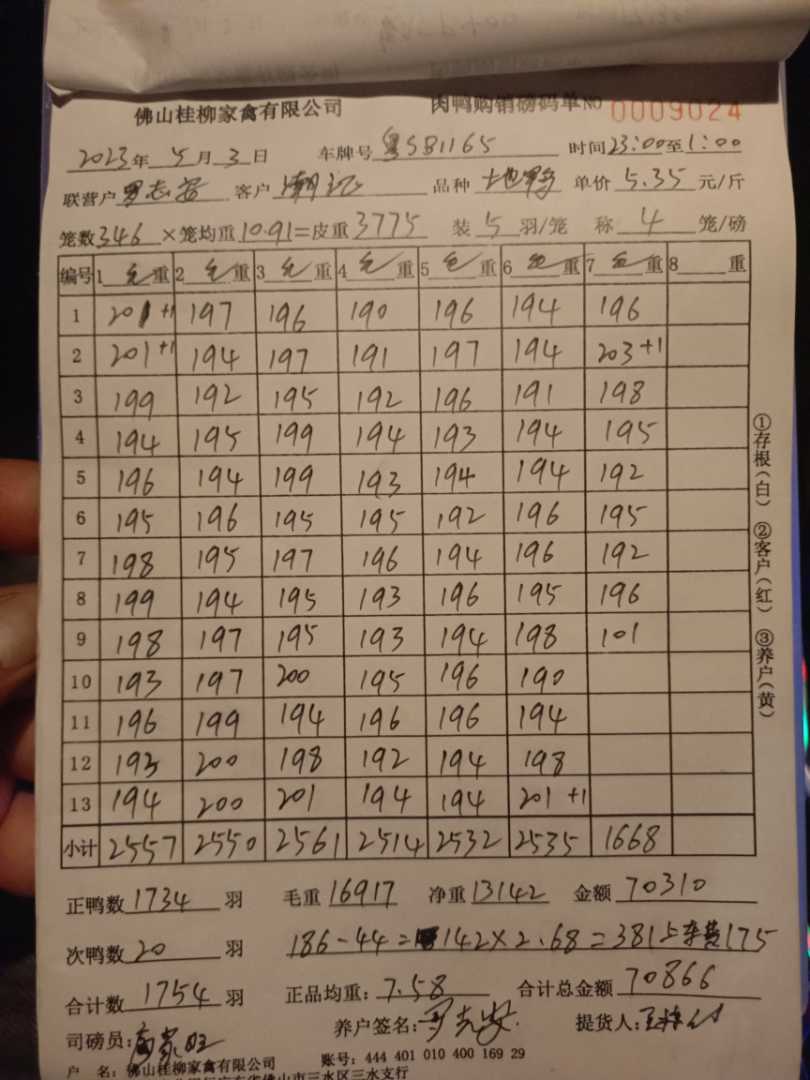 佛山桂柳家禽有限公司 肉鸭购销磅码单NO 0009024
2023年 5月 3日 车牌号 粤S81165 时间23:00至1:00
联营户 罗志安 客户 潮记 品种 单价 5.35 元/斤
笼数346 ×笼均重10.91=皮重3775 装 5 羽/笼 称 4 笼/磅
编号 1 毛重 2 毛重 3 毛重 4 毛重 5 毛重 6 毛重 7 毛重 8 重
1 201+1 197 196 190 196 194 196
2 201+1 194 197 191 197 194 203+1
3 199 192 195 192 196 191 198
4 194 195 199 194 193 194 195
5 196 194 199 193 194 194 192
6 195 196 195 195 192 196 195
7 198 195 197 196 194 196 192
8 199 194 195 193 196 195 196
9 198 197 195 193 194 198 101
10 193 197 200 195 196 190
11 196 199 194 196 196 194
12 193 200 198 192 194 198
13 194 200 201 194 194 201+1
小计 2557 2550 2561 2514 2532 2535 1668
正鸭数 1734 羽 毛重 16917 净重 13142 金额 70310
次鸭数 20 羽 186-44=142×2.68=381 175
合计数 1754 羽 正品均重: 7.58 合计总金额 70866
司磅员: 养户签名: 提货人:
户 名: 佛山桂柳家禽有限公司 账号: 444 401 010 400 169 29
佛山市三水区三水支行
①存根(白) ②客户(红) ③养户(黄)